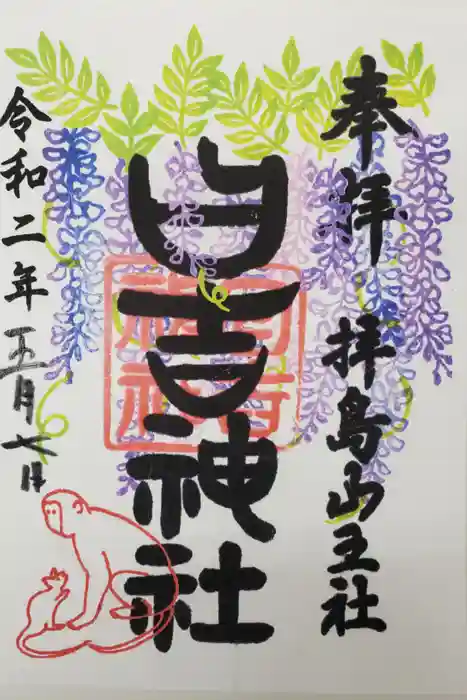 奉拝 拝島山王社
日吉神社
令和二年五月七日